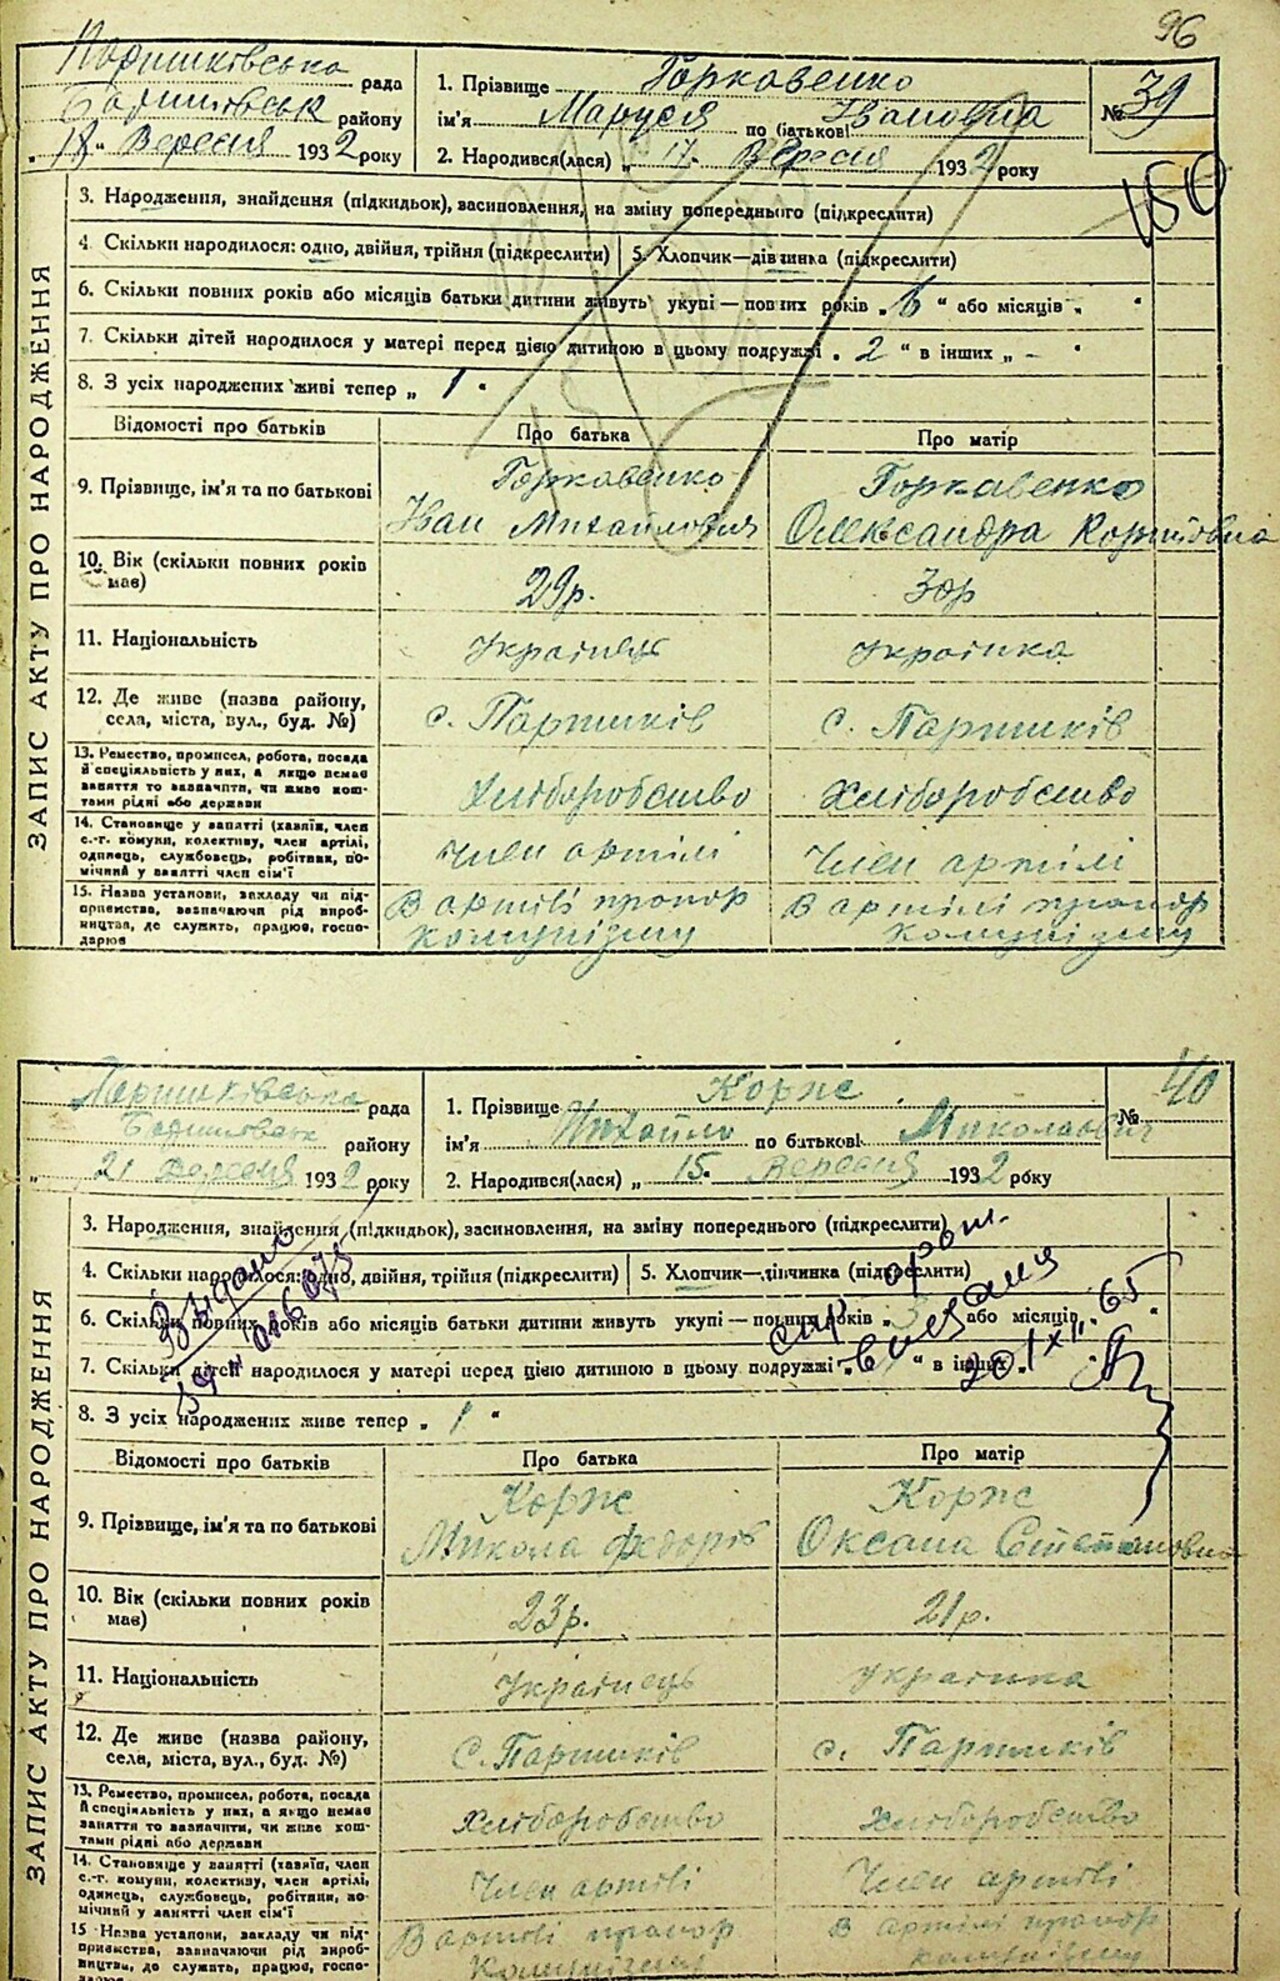 96
Паришківська рада
Баришівськ району
„18“ Вересня 1932 року
1. Прізвище Горкавенко
ім'я Маруся по батькові Івановна
2. Народився(лася) „17. Вересня 1932 року
№ 39
ЗАПИС АКТУ ПРО НАРОДЖЕННЯ
3. Народження, знайдення (підкидьок), засиновлення, на зміну попереднього (підкреслити)
4 Скільки народилося: одно, двійня, трійня (підкреслити) 5. Хлопчик—дівчинка (підкреслити)
6. Скільки повних років або місяців батьки дитини живуть укупі — повних років „6“ або місяців „ “
7. Скільки дітей народилося у матері перед цією дитиною в цьому подружжі „2“ в інших „ - “
8. З усіх народжених живі тепер „ 1 “
Відомості про батьків Про батька Про матір
9. Прізвище, ім'я та по батькові
Горкавенко Горкавенко
Іван Михайлович Олександра
10. Вік (скільки повних років має) 29р. 30р
11. Національність Українець Українка
12. Де живе (назва району, села, міста, вул., буд. №) с. Паришків с. Паришків
13. Ремество, промисел, робота, посада
й спеціяльність у них, а якщо немає
заняття то зазначити, чи живе кош-
тами рідні або держави
Хліборобство Хліборобство
14. Становище у занятті (хазяїн, член
с.-г. комуни, колективу, член артілі,
одинець, службовець, робітник, по-
мічний у занятті член сім'ї
Член артілі Член артілі
15. Назва установи, закладу чи під-
приємства, зазначаючи рід вироб-
ництва, де служить, працює, госпо-
дарює
В артілі прапор В артілі прапор
комунізму комунізму
Паришківська рада
Баришівськ району
„21 Вересня 1932 року
1. Прізвище Корж
ім'я Михайло по батькові Миколаович
2. Народився(лася) „15. Вересня 1932 року
№ 40
ЗАПИС АКТУ ПРО НАРОДЖЕННЯ
3. Народження, знайдення (підкидьок), засиновлення, на зміну попереднього (підкреслити)
4. Скільки народилося: одно, двійня, трійня (підкреслити) 5. Хлопчик—дівчинка (підкреслити)
6. Скільки повних років або місяців батьки дитини живуть укупі — повних років „3“ або місяців „ “
7. Скільки дітей народилося у матері перед цією дитиною в цьому подружжі „ “ в інших
8. З усіх народжених живе тепер „ 1 “
Видано
Відомості про батьків Про батька Про матір
9. Прізвище, ім'я та по батькові
Корж Корж
Микола Федорів Оксана Степановна
10. Вік (скільки повних років має) 23р. 21р.
11. Національність Українець Українка
12. Де живе (назва району, села, міста, вул., буд. №) С. Паришків с. Паришків
13. Ремество, промисел, робота, посада
й спеціяльність у них, а якщо немає
заняття то зазначити, чи живе кош-
тами рідні або держави
Хліборобство Хліборобство
14. Становище у занятті (хазяїн, член
с.-г. комуни, колективу, член артілі,
одинець, службовець, робітник, по-
мічний у занятті член сім'ї
Член артілі Член артілі
15 Назва установи, закладу чи під-
приємства, зазначаючи рід вироб-
ництва, де служить, працює, госпо-
дарює
В артілі прапор В артілі прапор
комунізму комунізму